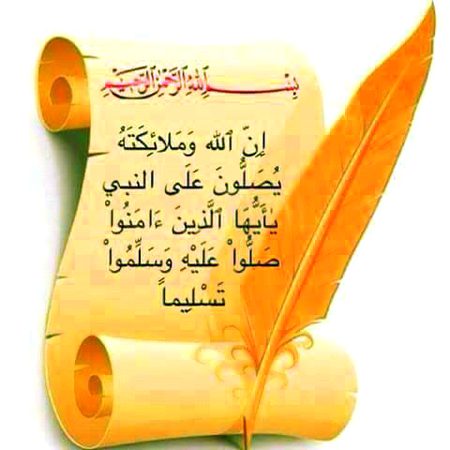 بِسْمِ اللهِ الرَّحْمٰنِ الرَّحِيْمِ
إِنّ ٱلله وَمَلَائِكَتَهُ
يُصَلُّونَ عَلَى النبي
يَٰأَيُّهَا ٱلَّذِينَ ءَامَنُواْ
صَلُّواْ عَلَيْهِ وَسَلِّمُواْ
تَسْلِيماً